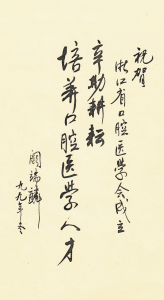 祝賀
浙江省口腔医學会成立
辛勤耕耘
培养口腔医学人才
阎瑞麟
九九年冬